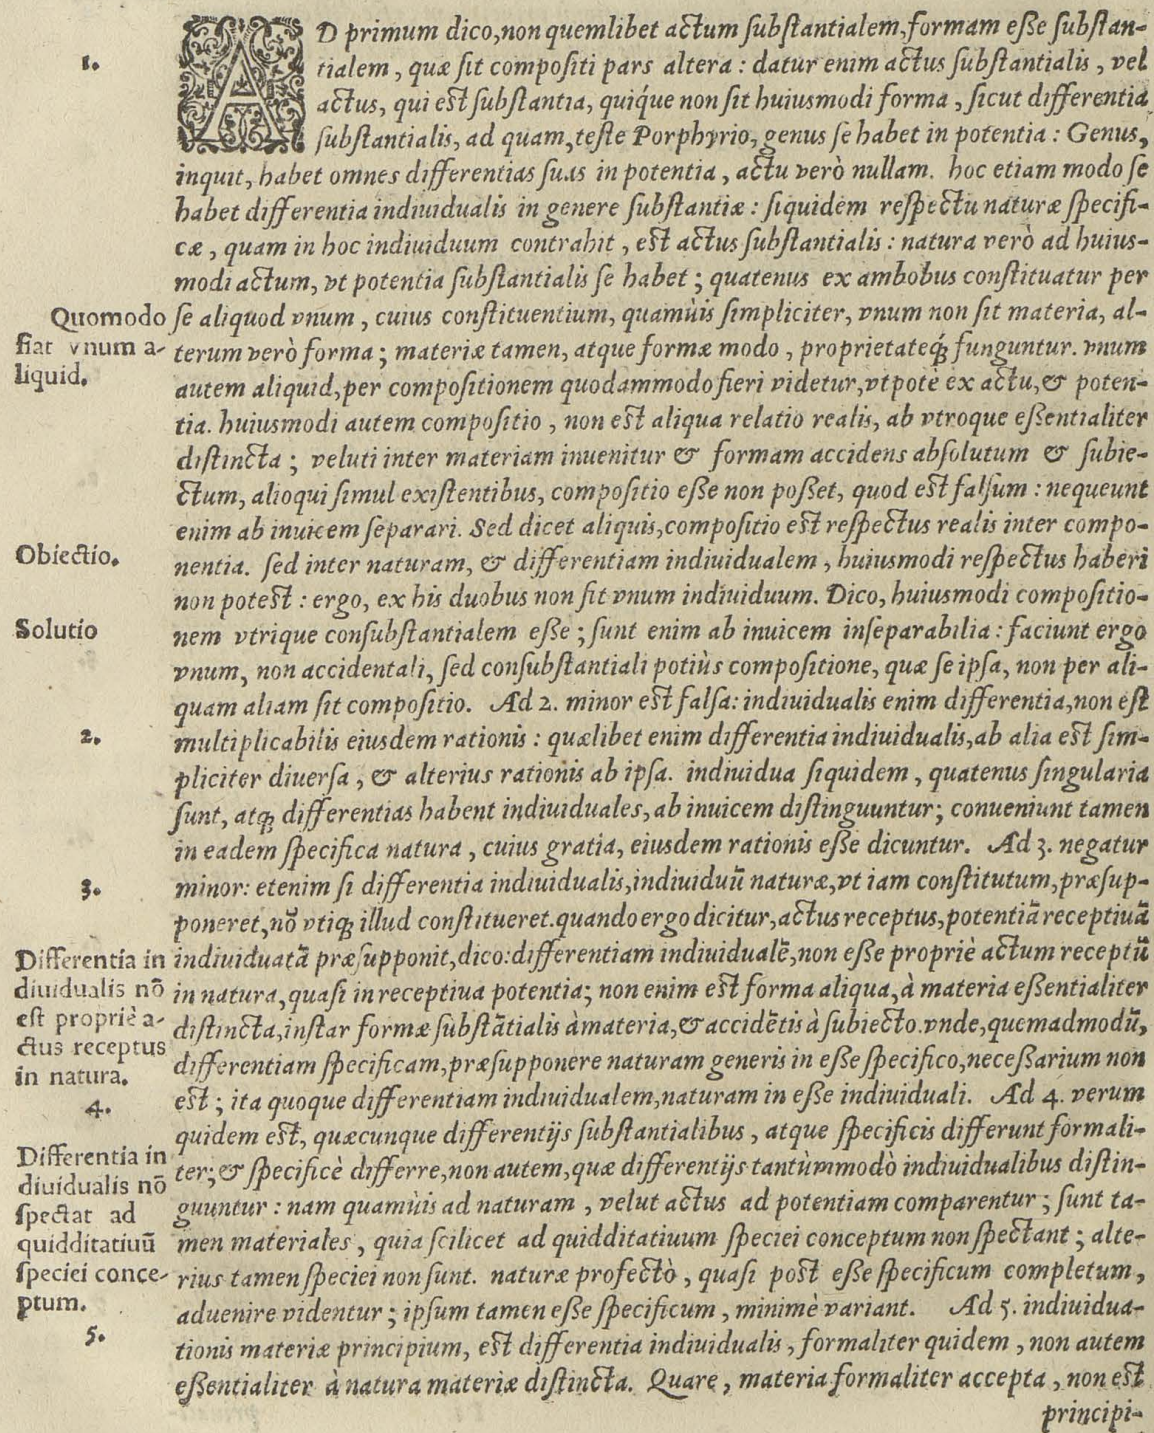 1.
AD primum dico, non quemlibet actum ſubſtantialem, formam eſſe ſubſtan-
tialem, quæ ſit compoſiti pars altera: datur enim actus ſubſtantialis, vel
actus, qui eſt ſubſtantia, quiq́ue non ſit huiusmodi forma, ſicut differentia
ſubſtantialis, ad quam, teſte Porphyrio, genus ſe habet in potentia: Genus,
inquit, habet omnes differentias ſuas in potentia, actu verò nullam. hoc etiam modo ſe
habet differentia indiuidualis in genere ſubſtantiæ: ſiquidem reſpectu naturæ ſpecifi-
cæ, quam in hoc indiuiduum contrahit, eſt actus ſubſtantialis: natura verò ad huius-
modi actum, vt potentia ſubſtantialis ſe habet; quatenus ex ambobus conſtituatur per
Quomodo
fiat vnum a-
liquid.
ſe aliquod vnum, cuius conſtituentium, quamùis ſimpliciter, vnum non ſit materia, al-
terum verò forma; materiæ tamen, atque formæ modo, proprietateq́; funguntur. vnum
autem aliquid, per compoſitionem quodammodo fieri videtur, vtpotè ex actu, & poten-
tia. huiusmodi autem compoſitio, non eſt aliqua relatio realis, ab vtroque eſſentialiter
diſtincta; veluti inter materiam inuenitur & formam accidens abſolutum & ſubie-
ctum, alioqui ſimul exiſtentibus, compoſitio eſſe non poſſet, quod eſt falſum: nequeunt
enim ab inuicem ſeparari. Sed dicet aliquis, compoſitio eſt reſpectus realis inter compo-
Obiectio.
nentia. ſed inter naturam, & differentiam indiuidualem, huiusmodi reſpectus haberi
non poteſt: ergo, ex his duobus non fit vnum indiuiduum. Dico, huiusmodi compoſitio-
Solutio
nem vtrique conſubſtantialem eſſe; ſunt enim ab inuicem inſeparabilia: faciunt ergo
vnum, non accidentali, ſed conſubſtantiali potiùs compoſitione, quæ ſe ipſa, non per ali-
quam aliam ſit compoſitio. Ad 2. minor eſt falſa: indiuidualis enim differentia, non eſt
2.
multiplicabilis eiusdem rationis: quælibet enim differentia indiuidualis, ab alia eſt ſim-
pliciter diuerſa, & alterius rationis ab ipſa. indiuidua ſiquidem, quatenus ſingularia
ſunt, atq; differentias habent indiuiduales, ab inuicem diſtinguuntur; conueniunt tamen
in eadem ſpecifica natura, cuius gratia, eiusdem rationis eſſe dicuntur. Ad 3. negatur
3.
minor: etenim ſi differentia indiuidualis, indiuiduū naturæ, vt iam conſtitutum, præſup-
poneret, nō vtiq; illud conſtitueret. quando ergo dicitur, actus receptus, potentiā receptiuā
Differentia in
diuidualis nō
eſt propriè a-
ctus receptus
in natura.
indiuiduatā præſupponit, dico: differentiam indiuidualē, non eſſe propriè actum receptū
in natura, quaſi in receptiua potentia; non enim eſt forma aliqua, à materia eſſentialiter
diſtincta, inſtar formæ ſubſtātialis à materia, & accidētis à ſubiecto. vnde, quemadmodū,
differentiam ſpecificam, præſupponere naturam generis in eſſe ſpecifico, neceſſarium non
eſt; ita quoque differentiam indiuidualem, naturam in eſſe indiuiduali. Ad 4. verum
4.
quidem eſt, quæcunque differentijs ſubſtantialibus, atque ſpecificis differunt formali-
Differentia in
diuidualis nō
ſpectat ad
quidditatiuū
ſpeciei conce-
ptum.
ter; & ſpecificè differre, non autem, quæ differentijs tantùmmodò indiuidualibus diſtin-
guuntur: nam quamùis ad naturam, velut actus ad potentiam comparentur; ſunt ta-
men materiales, quia ſcilicet ad quidditatiuum ſpeciei conceptum non ſpectant; alte-
rius tamen ſpeciei non ſunt. naturæ profectò, quaſi poſt eſſe ſpecificum completum,
aduenire videntur; ipſum tamen eſſe ſpecificum, minimè variant. Ad 5. indiuidua-
5.
tionis materiæ principium, eſt differentia indiuidualis, formaliter quidem, non autem
eſſentialiter à natura materiæ diſtincta. Quare, materia formaliter accepta, non eſt
principi-